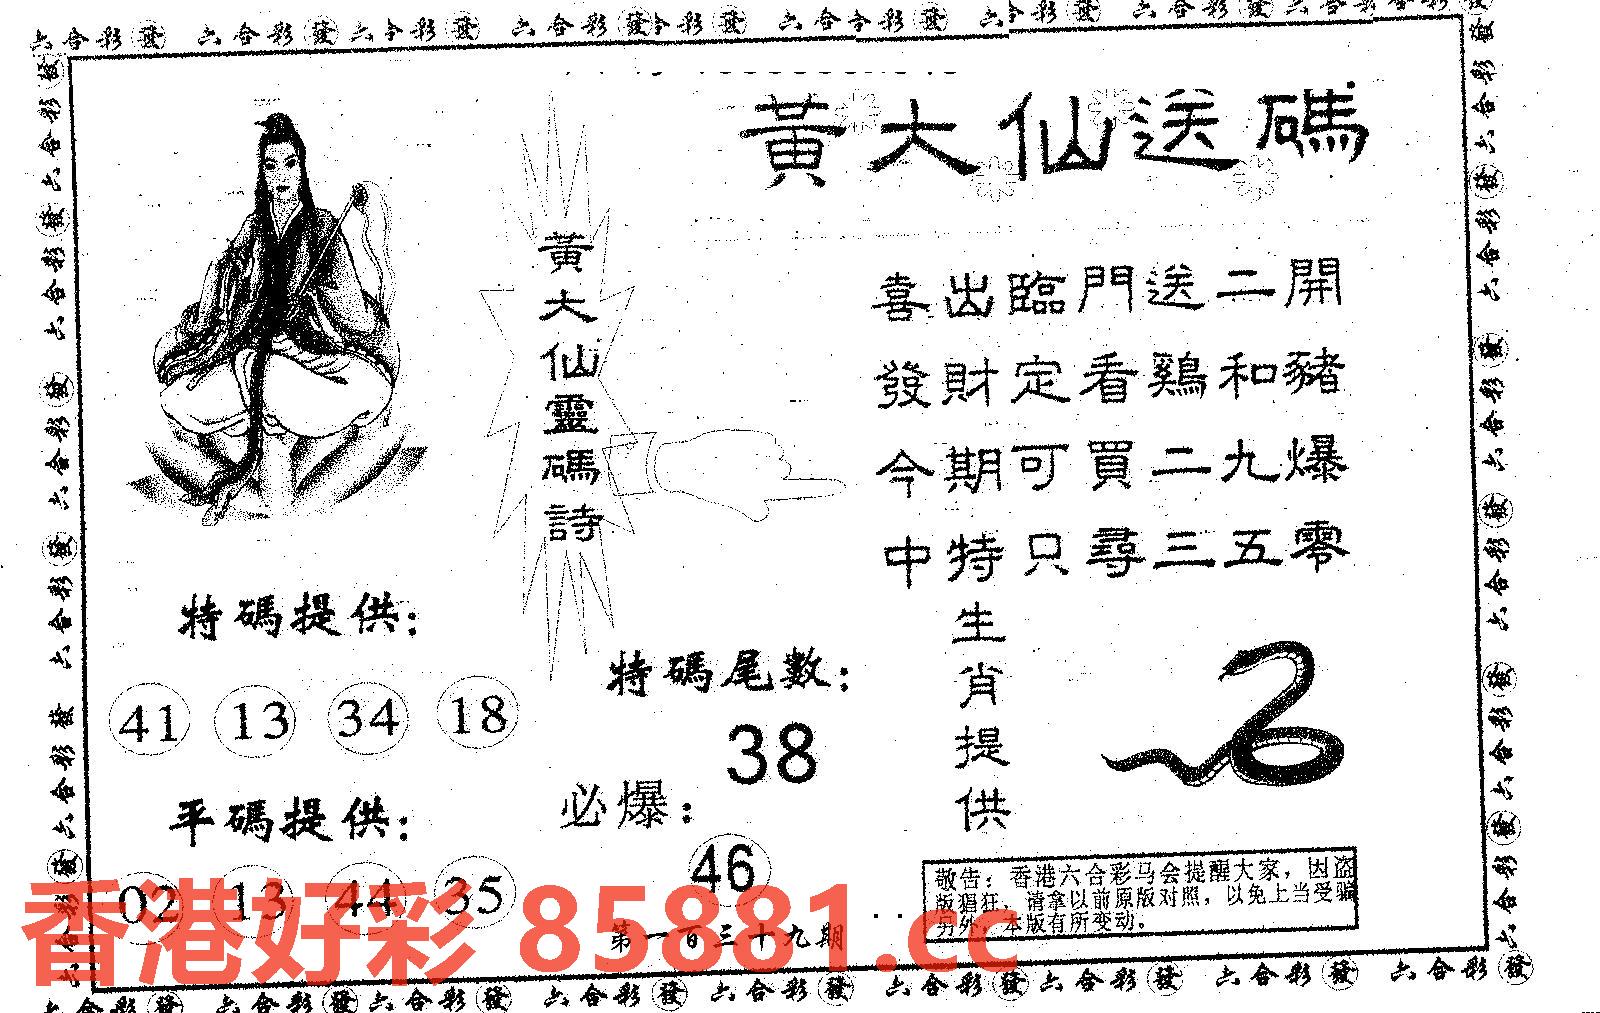 六合彩發 六合彩發 六合彩發 六合彩發 六合彩發 六合彩發 六合彩發 六合彩發 六合彩發
黃大仙送碼
黃大仙靈碼詩
喜出臨門送二開
發財定看鷄和豬
今期可買二九爆
中特只尋三五零
特碼提供：
41 13 34 18
平碼提供：
02 13 44 35
特碼尾數：
38
必爆：
46
第一百三十九期
生肖提供
敬告：香港六合彩马会提醒大家，因盗
版猖狂，请拿以前原版对照，以免上当受骗
另外，本版有所变动。
香港好彩 85881.cc
六合彩發 六合彩發 六合彩發 六合彩發 六合彩發 六合彩發 六合彩發 六合彩發 六合彩發